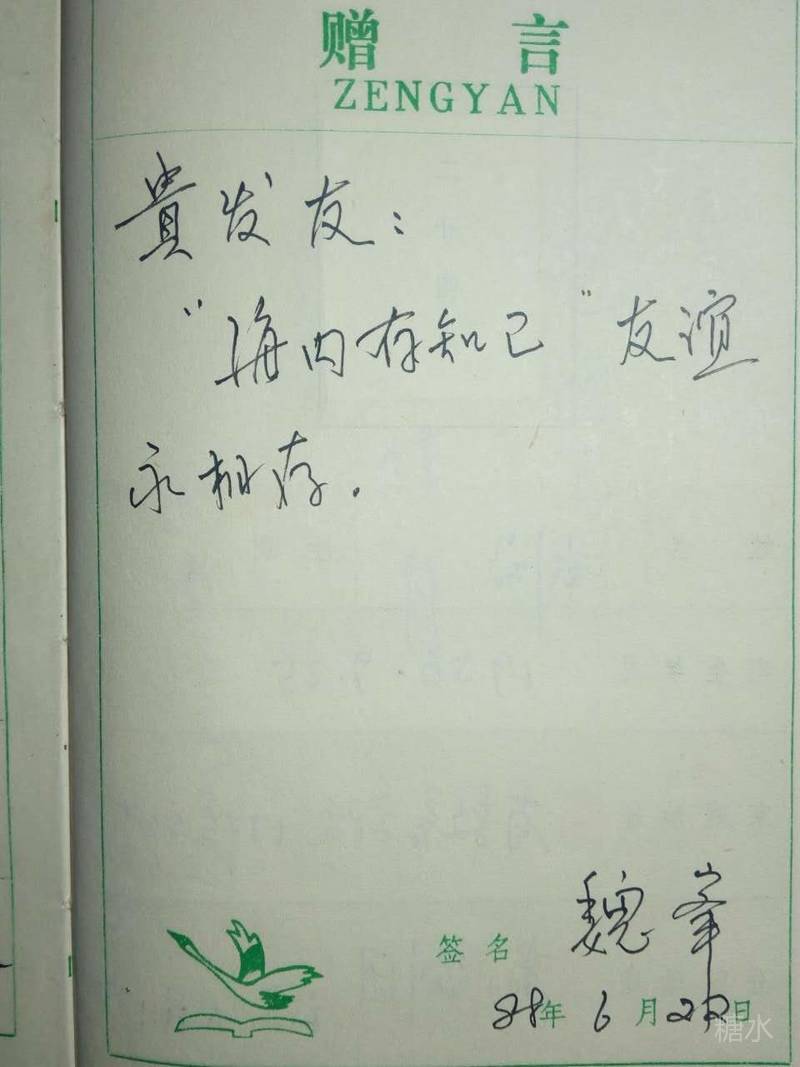 赠言
ZENGYAN
貴发友：
“海内存知己”友谊
永相存.
签名 魏峯
88年6月2 日
糖水